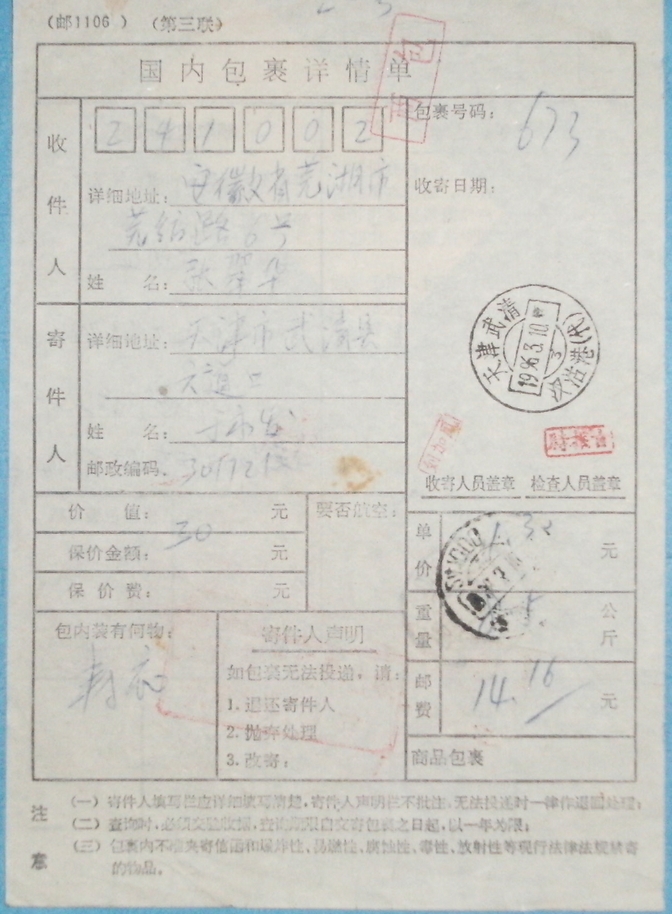 （邮1106 ）（第三联）
国内包裹详情单
收件人
241002
详细地址：安徽省芜湖市
芜纺路6号
姓 名：张翠华
寄件人
详细地址：天津市武清县
姓 名：
邮政编码. 301721
包裹号码： 673
收寄日期：
天津武清
1996.3.10
3
汉沽港(代)
收寄人员盖章 检查人员盖章
价 值： 30 元
保价金额： 元
保 价 费： 元
要否航空：
单价 元
重量 公斤
邮费 14.16 元
商品包裹
包内装有何物：
寄件人声明
如包裹无法投递，请：
1. 退还寄件人
2. 抛弃处理
3. 改寄：
注意
（一）寄件人填写栏应详细填写清楚，寄件人声明栏不批注，无法投递时一律作退回处理；
（二）查询时，必须交验收据，查询期限自交寄包裹之日起，以一年为限；
（三）包裹内不准夹寄信函和爆炸性、易燃性、腐蚀性、毒性、放射性等现行法律法规禁寄
的物品。